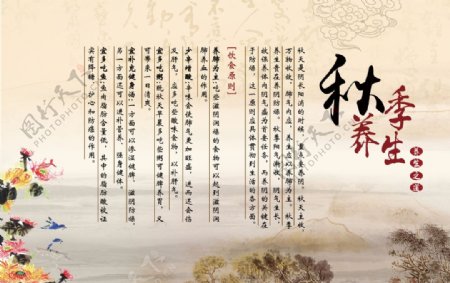 秋季养生
养生之道
秋天是阴长阳消的时候，重点要养阴。秋天主收，
万物收敛，肺气内应，养生应以养肺为主。秋季
养生贵在养阴防燥。秋季阳气渐收，阴气生长，
故保养体内阴气成为首要任务，而养阴的关键在
于防燥，这一原则应具体贯彻到生活的各方面。
[饮食原则]
养肺为主:吃些滋阴润燥的食物可以起到滋阴润
肺养血的作用。
少辛增酸:辛味会使肺气更加旺盛，进而还会伤
及肝气。应多吃些酸味食物，以补肝气。
宜多吃粥:晚秋天早晨多吃些粥可健脾养胃，又
可带来一日清爽。
宜补充健身汤:一方面可以渗湿健脾、滋阴防燥，
另一方面还可以进补营养、强身健体。
宜多吃鱼:鱼肉脂肪含量低，其中的脂肪酸被证
实有降糖、护心和防癌的作用。